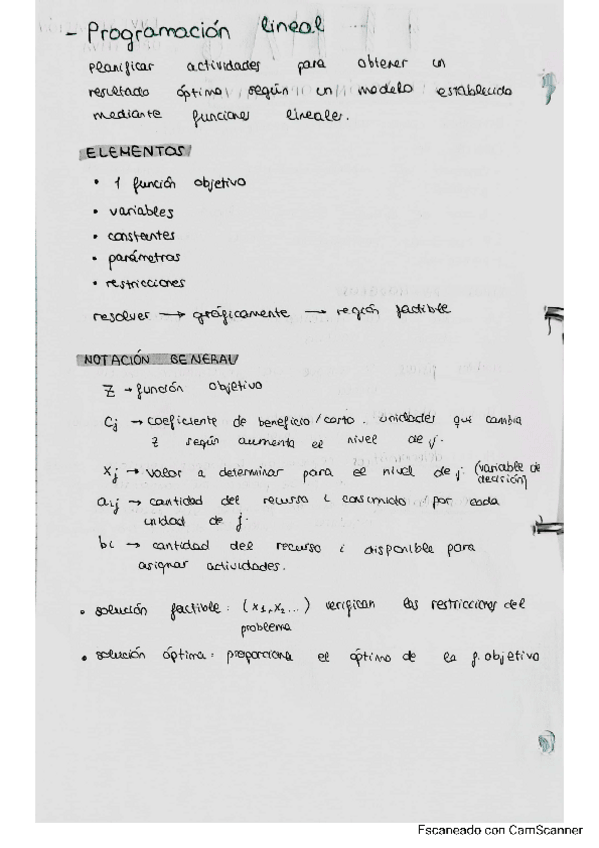 - Programación lineal
Planificar actividades para obtener un
resultado óptimo según un modelo establecido
mediante funciones lineales.
ELEMENTOS
• 1 función objetivo
• variables
• constantes
• parámetros
• restricciones
resolver → gráficamente → región factible
NOTACIÓN GENERAL
Z → función objetivo
Cj → coeficiente de beneficio/costo. unidades que cambia
Z según aumenta el nivel de j.
Xj → valor a determinar para el nivel de j (variable de
decisión)
aij → cantidad del recurso i consumido por cada
unidad de j.
bi → cantidad del recurso i disponible para
asignar actividades.
• solución factible: (x1, x2...) verifican las restricciones del
problema
• solución óptima: proporciona el óptimo de la f. objetivo
Escaneado con CamScanner